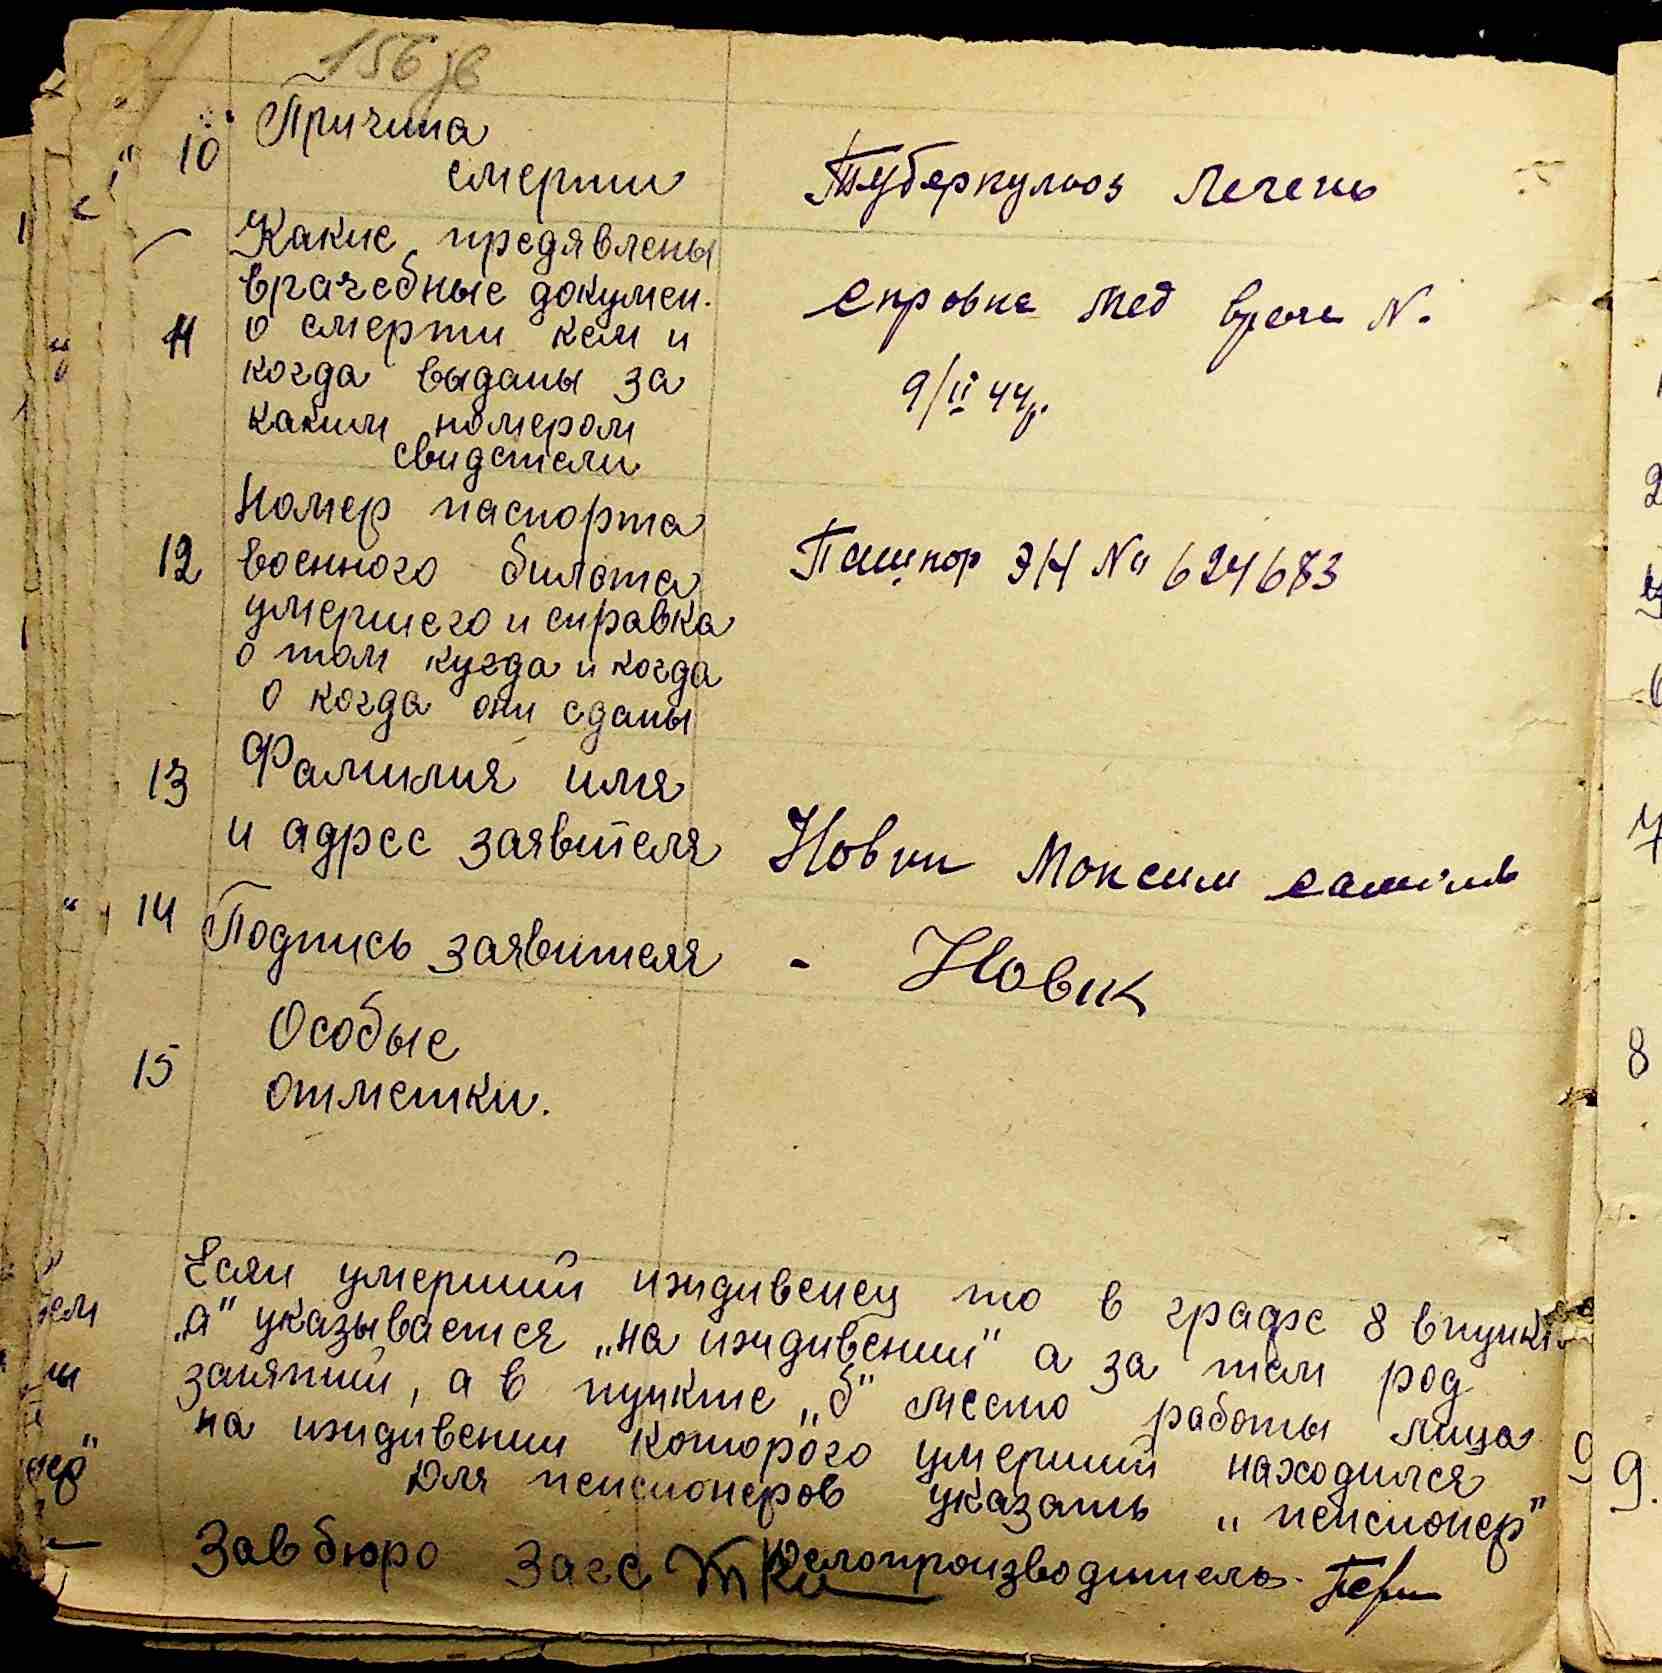 156 зв
10 Причина
смерти
Туберкулоз Печень
Какие предявлены
врачебные докумен.
11 о смерти кем и
когда выданы за
каким номером
свидетели
Справка Мед врача №.
9/II 44г.
Номер паспорта
12 военного билета
умершего и справка
о том кугда и когда
о когда они сданы
Пашпор ЭН № 624683
13 Фамилия имя
и адрес заявителя
Новик Моксим
14 Подпись заявителя - Новик
Особые
15 отметки.
Если умерший иждивенец то в графе 8 в пункт
„а" указывается „на иждивении" а за тем род
занятий, а в пункте „б" место работы лица
на иждивении которого умерший находился
Для пенсионеров указать „пенсионер"
Зав бюро Загс Делопроизводитель.